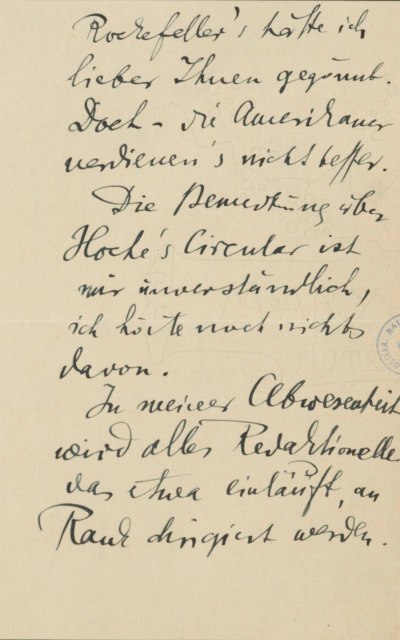 Rockefeller's hätte ich
lieber Ihnen gegönnt.
Doch – die Amerikaner
verdienen's nicht besser.
Die Bemerkung über
Hoche's Circular ist
mir unverständlich,
ich hörte noch nichts
davon.
In meiner Abwesenheit
wird alles Redaktionelle
das etwa einläuft, an
Rank dirigiert werden.